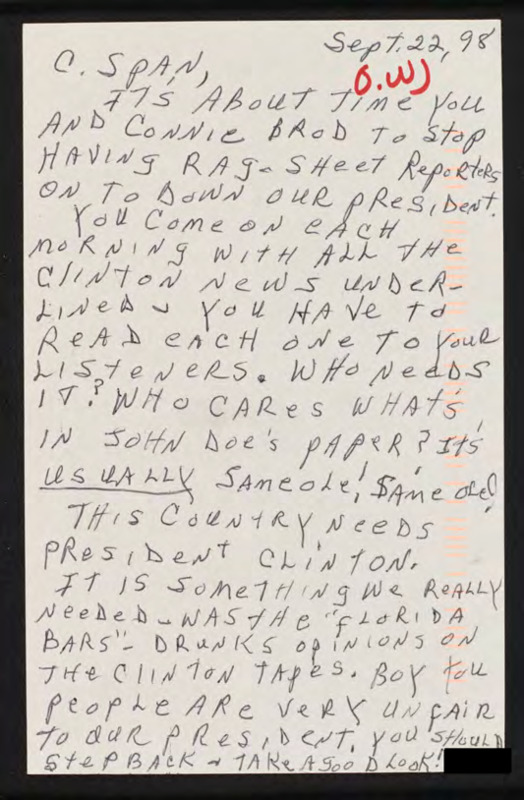 Sept. 22, 98
C. SPAN,
O.W)
ITS ABOUT TIME YOU
AND CONNIE BROD TO STOP
HAVING RAG-SHEET REPORTERS
ON TO DOWN OUR PRESIDENT.
YOU COME ON EACH
MORNING WITH ALL THE
CLINTON NEWS UNDER-
LINED - YOU HAVE TO
READ EACH ONE TO YOUR
LISTENERS. WHO NEEDS
IT? WHO CARES WHAT'S
IN JOHN DOE'S PAPER? IT'S
USUALLY SAME OLE! SAME OLE!
THIS COUNTRY NEEDS
PRESIDENT CLINTON.
IT IS SOMETHING WE REALLY
NEEDED - WAS THE "FLORIDA
BARS" - DRUNKS OPINIONS ON
THE CLINTON TAPES. BOY YOU
PEOPLE ARE VERY UNFAIR
TO OUR PRESIDENT. YOU SHOULD
STEP BACK + TAKE A GOOD LOOK!